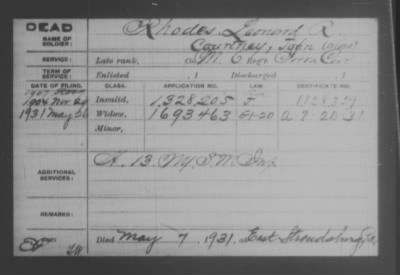 DEAD
NAME OF SOLDIER: Rhodes, Leonard R.
Courtney, John (alias)
SERVICE: Late rank, Co. M, 6 Reg't Cav
TERM OF SERVICE: Enlisted , 1 Discharged , 1
DATE OF FILING. CLASS. APPLICATION NO. LAW. CERTIFICATE NO.
1904 Nov. Invalid, 1,328,205 J
1931 May 26 Widow, 1693463 51-20 A 7-20-31
Minor,
ADDITIONAL SERVICES: 13, N.Y. Inf
REMARKS:
Died May 7, 1931, East Stroudsburg, Pa.